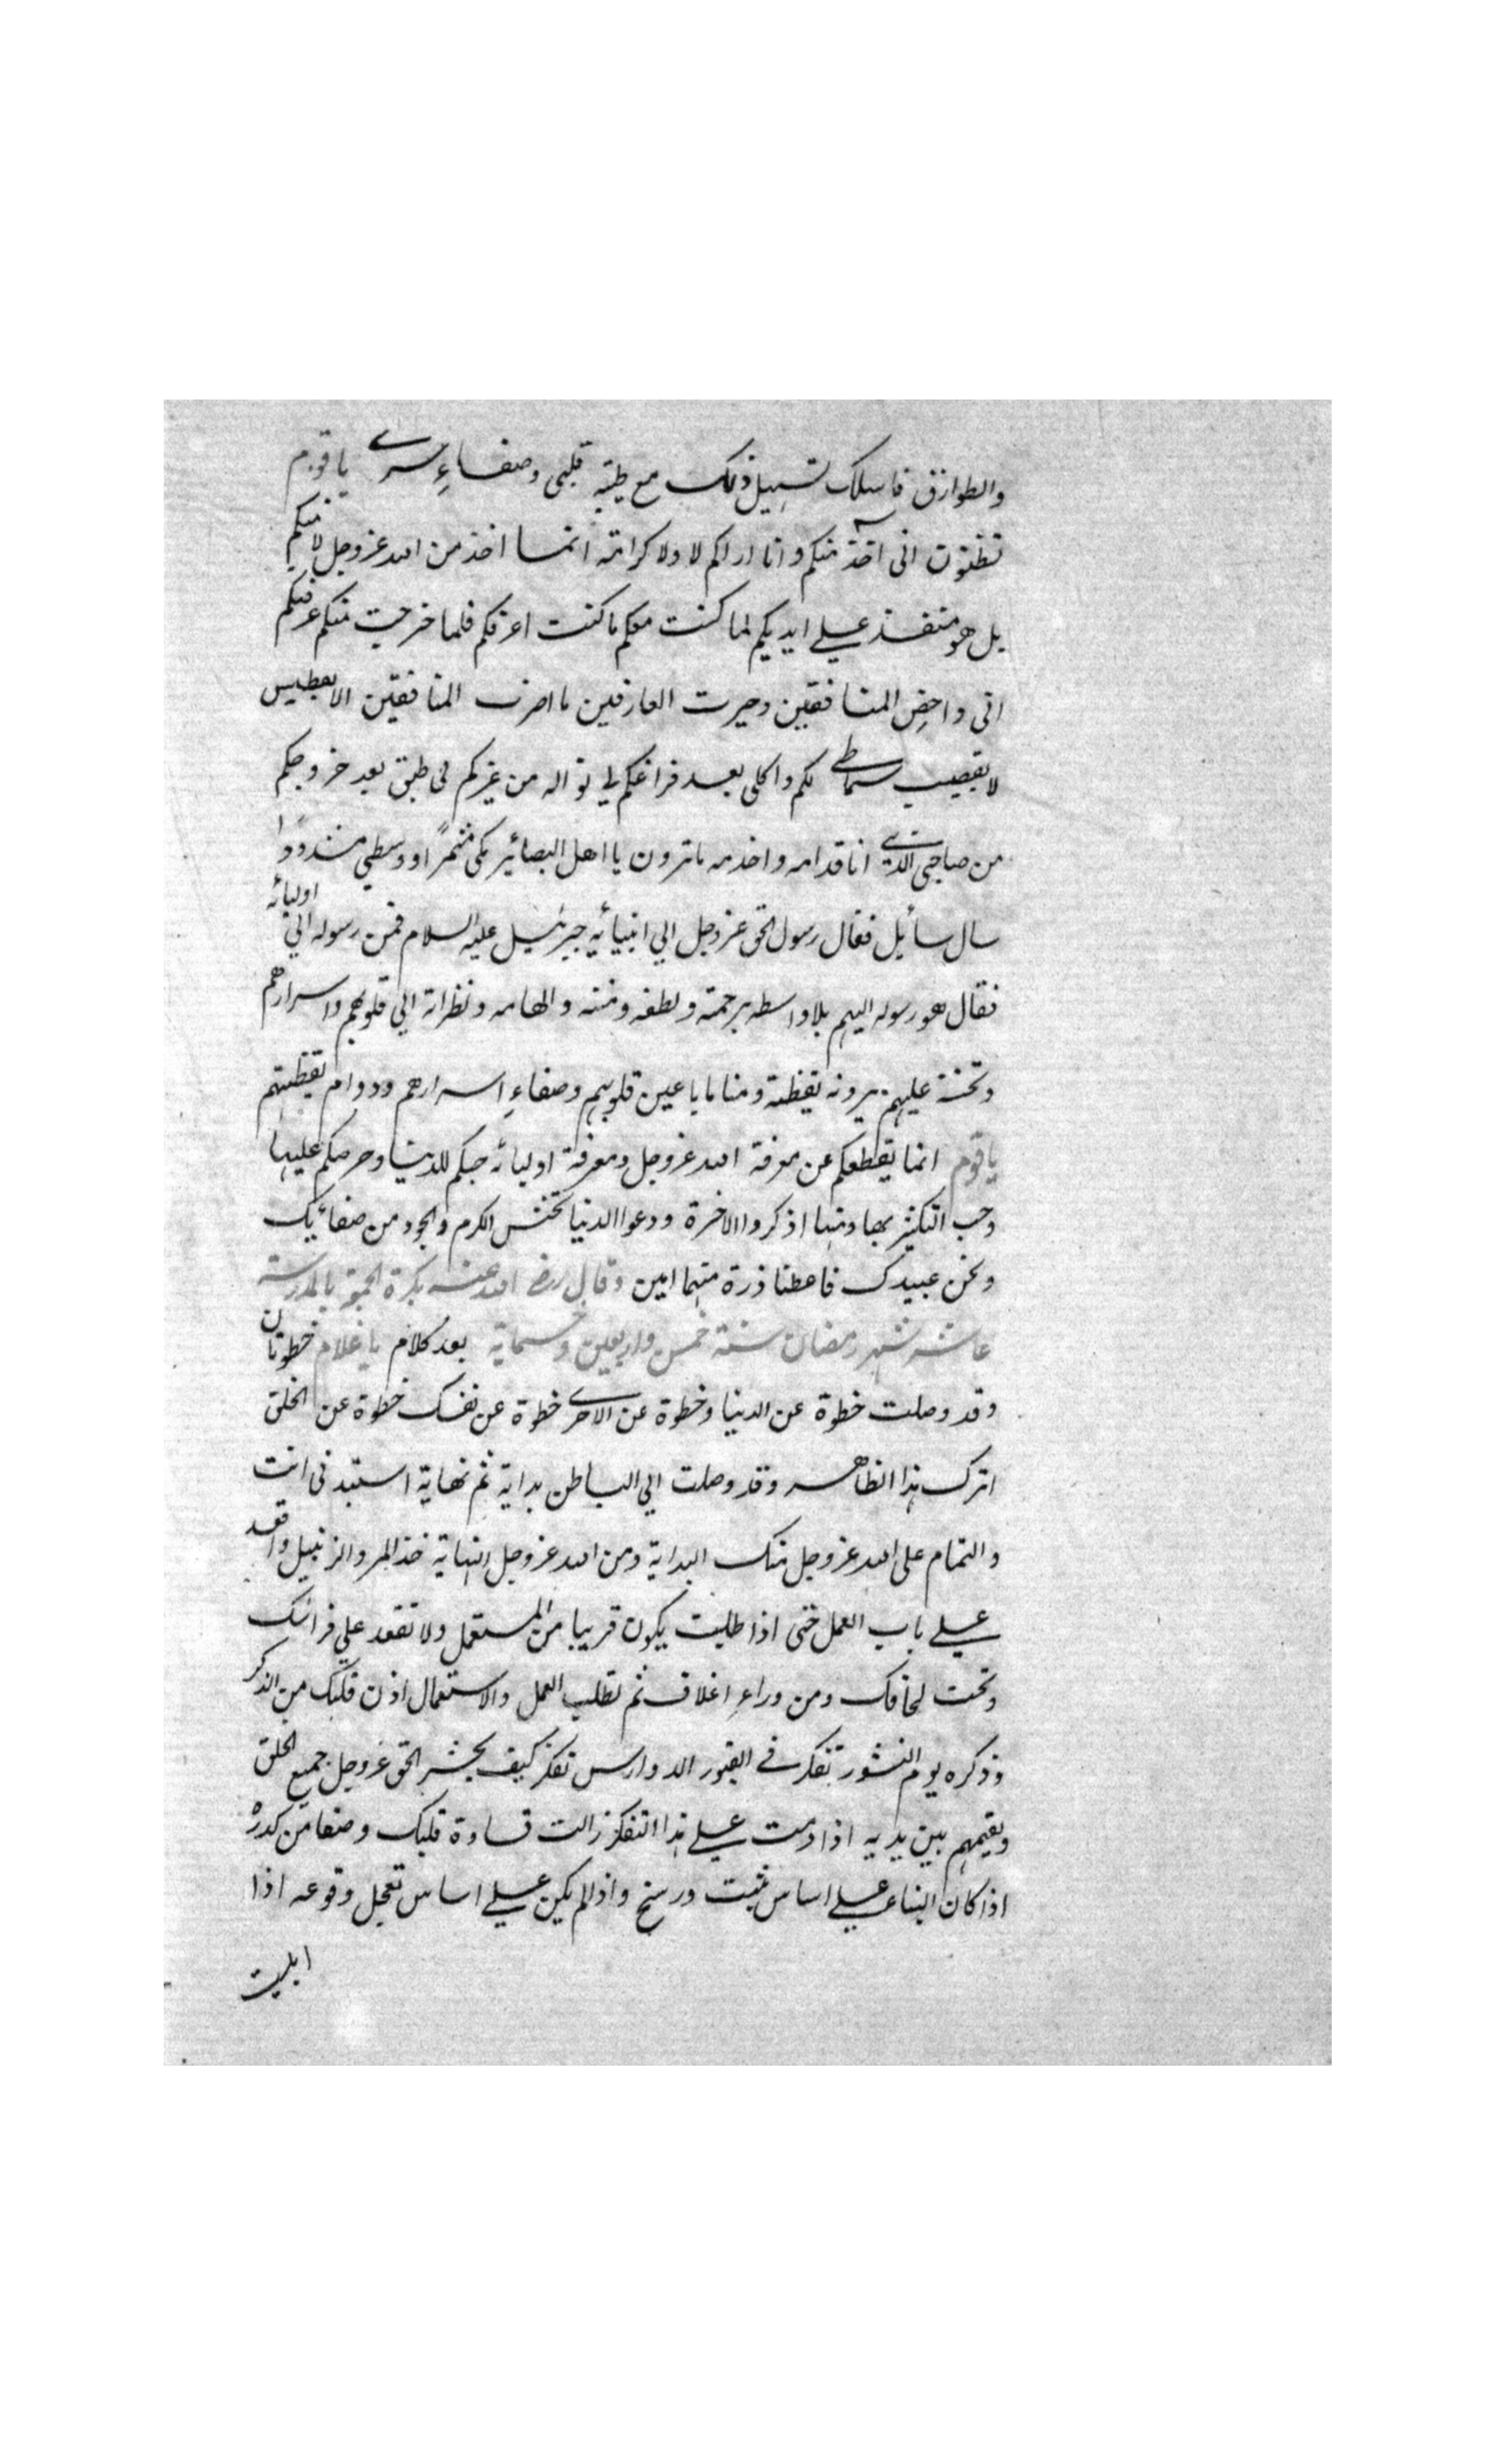 والطوارق فاسلك تسهيل ذلك مع طيبة قلبى وصفاءِ سرے يا قوم
تظنون انى آخذ منكم وانا اراكم لا ولا كرامة انما اخذ من الله عزوجل لا منكم
بل هو منفذ علے ايديكم لما كنت معكم ما كنت اعرفكم فلما خرجت منكم عرفتكم
انى واحض المنافقين وحيرت العارفين ما اضرب المنافقين الا
لا سماطے لكم واكلى بعد فراغكم لے من غيركم لى طبق بعد خروجكم
من صاحبى الذے انا قدامه واخدمه ما ترون يا اهل البصائر كمى مشمرًا ووسطي مشدودًا
سال سأيل فقال رسول الحق عزوجل الي انبيائه جبرئيل عليه السلام فمن رسوله الي اوليائه
فقال هو رسوله اليهم بلا واسطه برحمته ولطفه ومنته والهامه ونظراته الي قلوبهم واسرارهم
وتحننه عليهم يرونه يقظة ومناما باعين قلوبهم وصفاءِ اسرارهم ودوام يقظتهم
يا قوم انما يقطعكم عن معرفة الله عزوجل ومعرفة اوليائه حبكم للدنيا وحرصكم عليها
وحب التكثير بها ومنها اذكروا الاخرة ودعوا الدنيا الكرم والجود من صفأيك
ونحن عبيدك فاعطنا ذرة منهما امين وقال رضے الله عنه بكرة الجمعة بالمدرسة
عاشر شهر رمضان سنة خمس واربعين وخمسماية بعد كلام يا غلام خطوتان
وقد وصلت خطوة عن الدنيا وخطوة عن الاخرے خطوة عن نفسك خطوة عن الخلق
اترك هذا الظاهر وقد وصلت الي الباطن بداية ثم نهاية استبد فى انت
والتمام على الله عزوجل منك البداية ومن الله عزوجل النهاية خذ المر والزنبيل واقعد
علے باب العمل حتى اذا طلبت يكون قريبا من المستعمل ولا تقعد علي فراشك
وتحت لحافك ومن وراءِ اغلاف ثم تطلب العمل والاستعمال اذن قلبك من الذكر
وذكره يوم النشور تفكر فے القبور الدوارس تفكر كيف يحشر الحق عزوجل جميع الخلق
ويقيمهم بين يديه اذا دمت علے هذا التفكر زالت قساوة قلبك وصفا من كدره
اذا كان البناء علے اساس ثبت ورسخ واذا لم يكن علے اساس تعجل وقوعه اذا